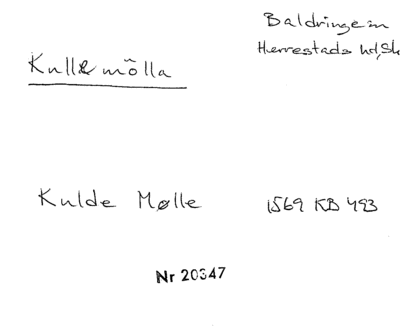 Baldringe sn
Herrestads hd, Sk
Kullemölla
Kulde Mølle 1569 KB 493
Nr 20347